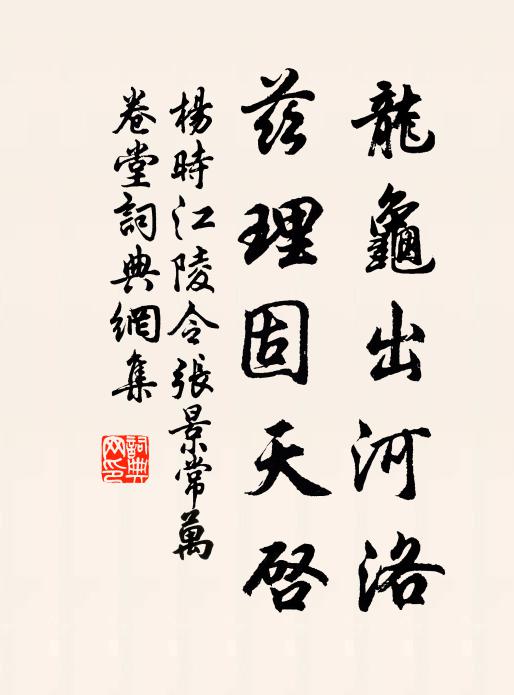 龍龜出河洛
茲理固天啓
楊時江陵令張景常萬
卷堂詞典網集
詞典网印